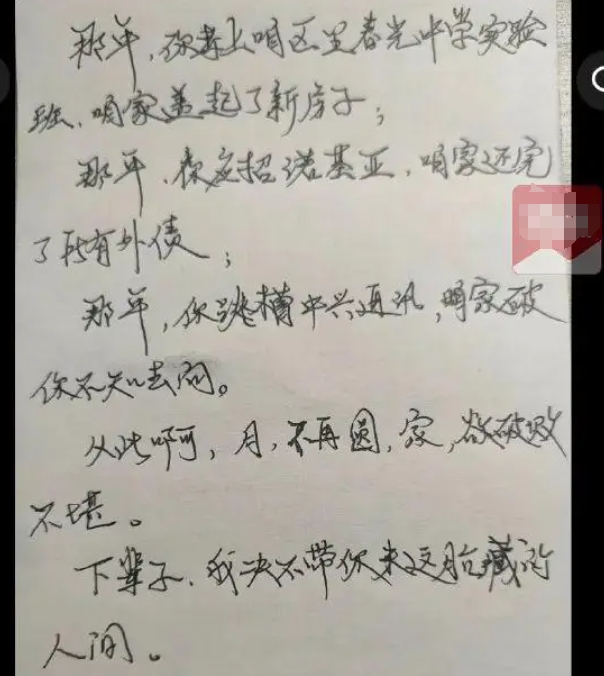 那年,你考上咱区里春光中学实验
班、咱家盖起了新房子;
那年,你应招诺基亚,咱家还完
了所有外债;
那年,你跳槽中兴通讯,咱家破
你不知去向。
从此啊,月,不再圆,家,破败
不堪。
下辈子,我决不带你来这肮脏的
人间。